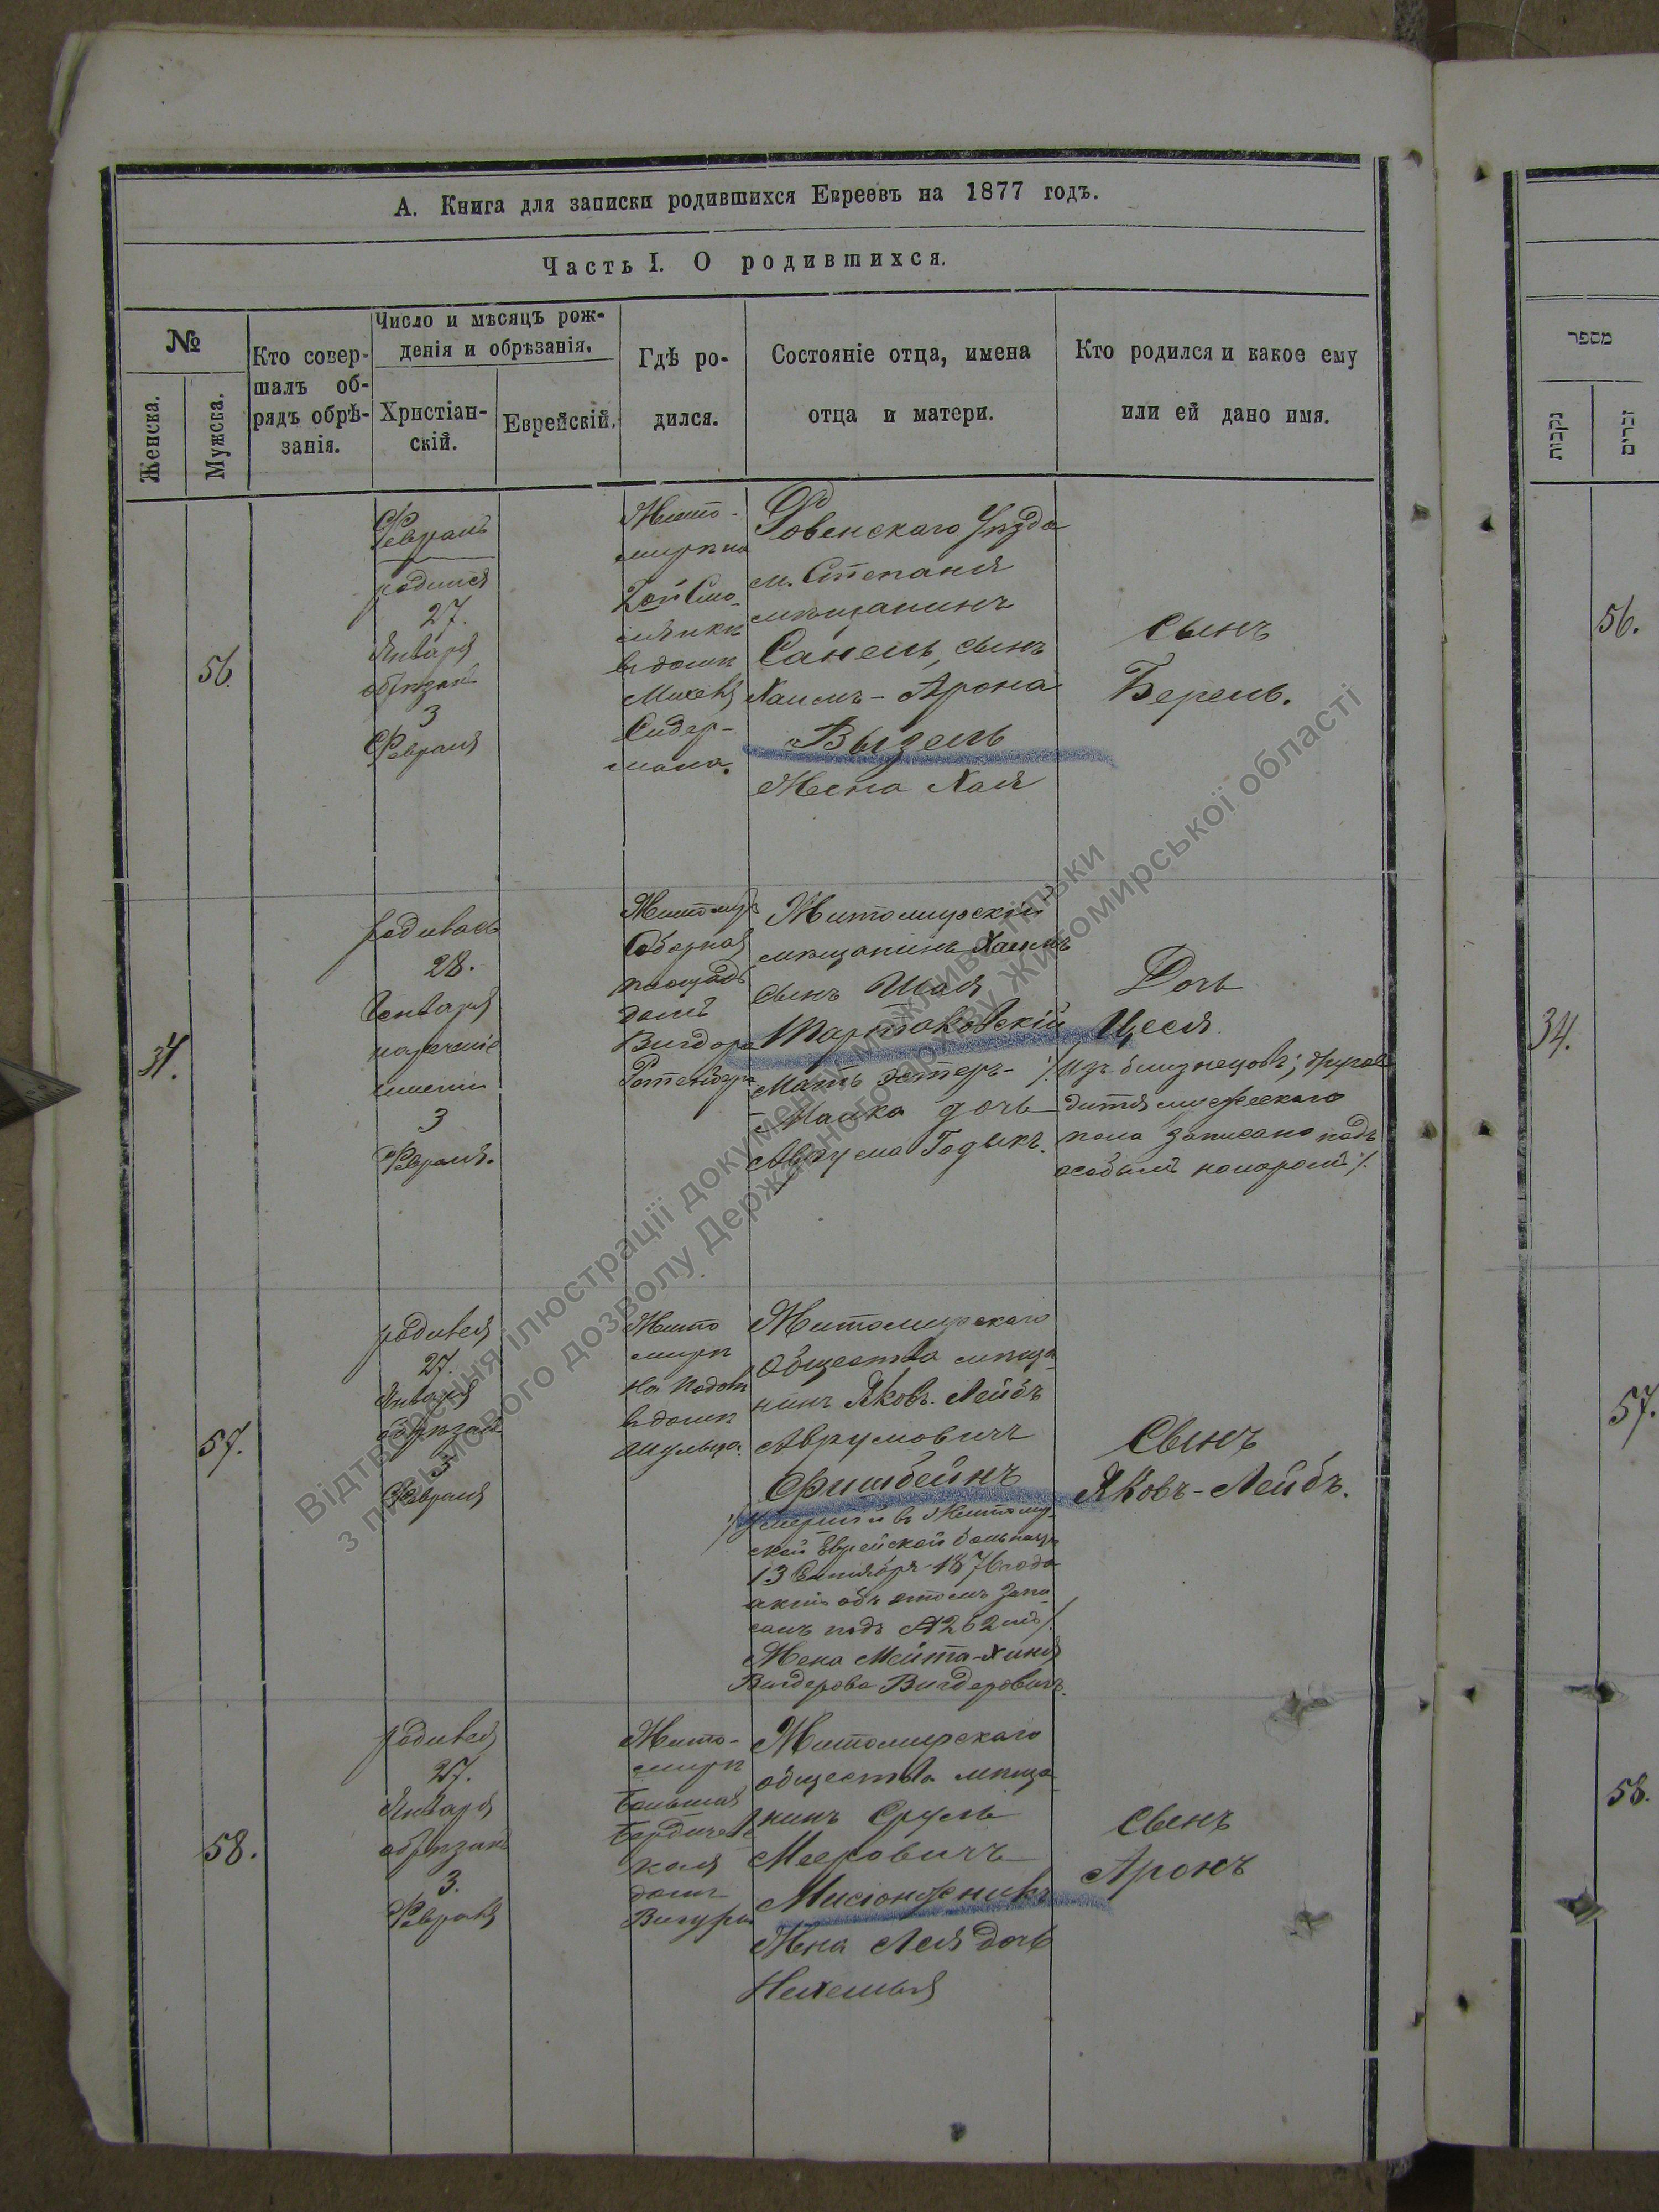 А. Книга для записки родившихся Евреевъ на 1877 годъ.
Часть I. О родившихся.
№
Женска.
Мужска.
Кто совер-
шалъ об-
рядъ обрѣ-
занія.
Число и мѣсяцъ рож-
денія и обрѣзанія.
Христіан-
скій.
Еврейскій.
Гдѣ ро-
дился.
Состояніе отца, имена
отца и матери.
Кто родился и какое ему
или ей дано имя.
56.
Февраль
родился
27.
Января
обрѣзанъ
3
Февраля
Жито-
мирѣ на
2ой
въ домѣ
Сидер-
мана.
Ровенскаго Уѣзда
м. Степаня
мѣщанинъ
Санель, сынъ
Хаимъ-Арона
Выдель
Жена Хая
Сынъ
Берель.
34.
родилась
28.
Января
нареченіе
имени
3
Февраля.
Житомиръ
Соборная
площадь
домъ
Вигдора
Житомирскій
мѣщанинъ Хаимъ
сынъ Шая
Тартаковскій
Мать Эстеръ-
Малка дочь
Аврума Годыкъ.
Дочь
Цеся
/. Изъ близнецовъ; другое
дитя мужескаго
пола записано подъ
особымъ номеромъ /.
57.
родился
27.
Января
обрѣзанъ
3
Февраля
Жито
мирѣ
на Подолѣ
въ домѣ
Шульца.
Житомирскаго
общества мѣща-
нинъ Яковъ-Лейбъ
Аврумовичъ
Фишбейнъ
/. Умершій въ Житомир-
ской Еврейской больницѣ
13 Сентября 1876 года
актъ объ этомъ запи-
санъ подъ № 262мъ /.
Жена Мейта-Хиня
Вигдорова Вигдоровичъ.
Сынъ
Яковъ-Лейбъ.
58.
родился
27.
Января
обрѣзанъ
3.
Февраля
Жито-
мирѣ
Большая
Бердичевс
кая
домъ
Вигуры
Житомирскаго
общества мѣща-
нинъ Сруль
Мееровичъ
Жена Лея дочь
Нехемья
Сынъ
Аронъ
מספר
נקבות
זכרים
56.
34.
57.
58.
Відтворення ілюстрації документу можливе тільки
з письмового дозволу Державного архіву Житомирської області